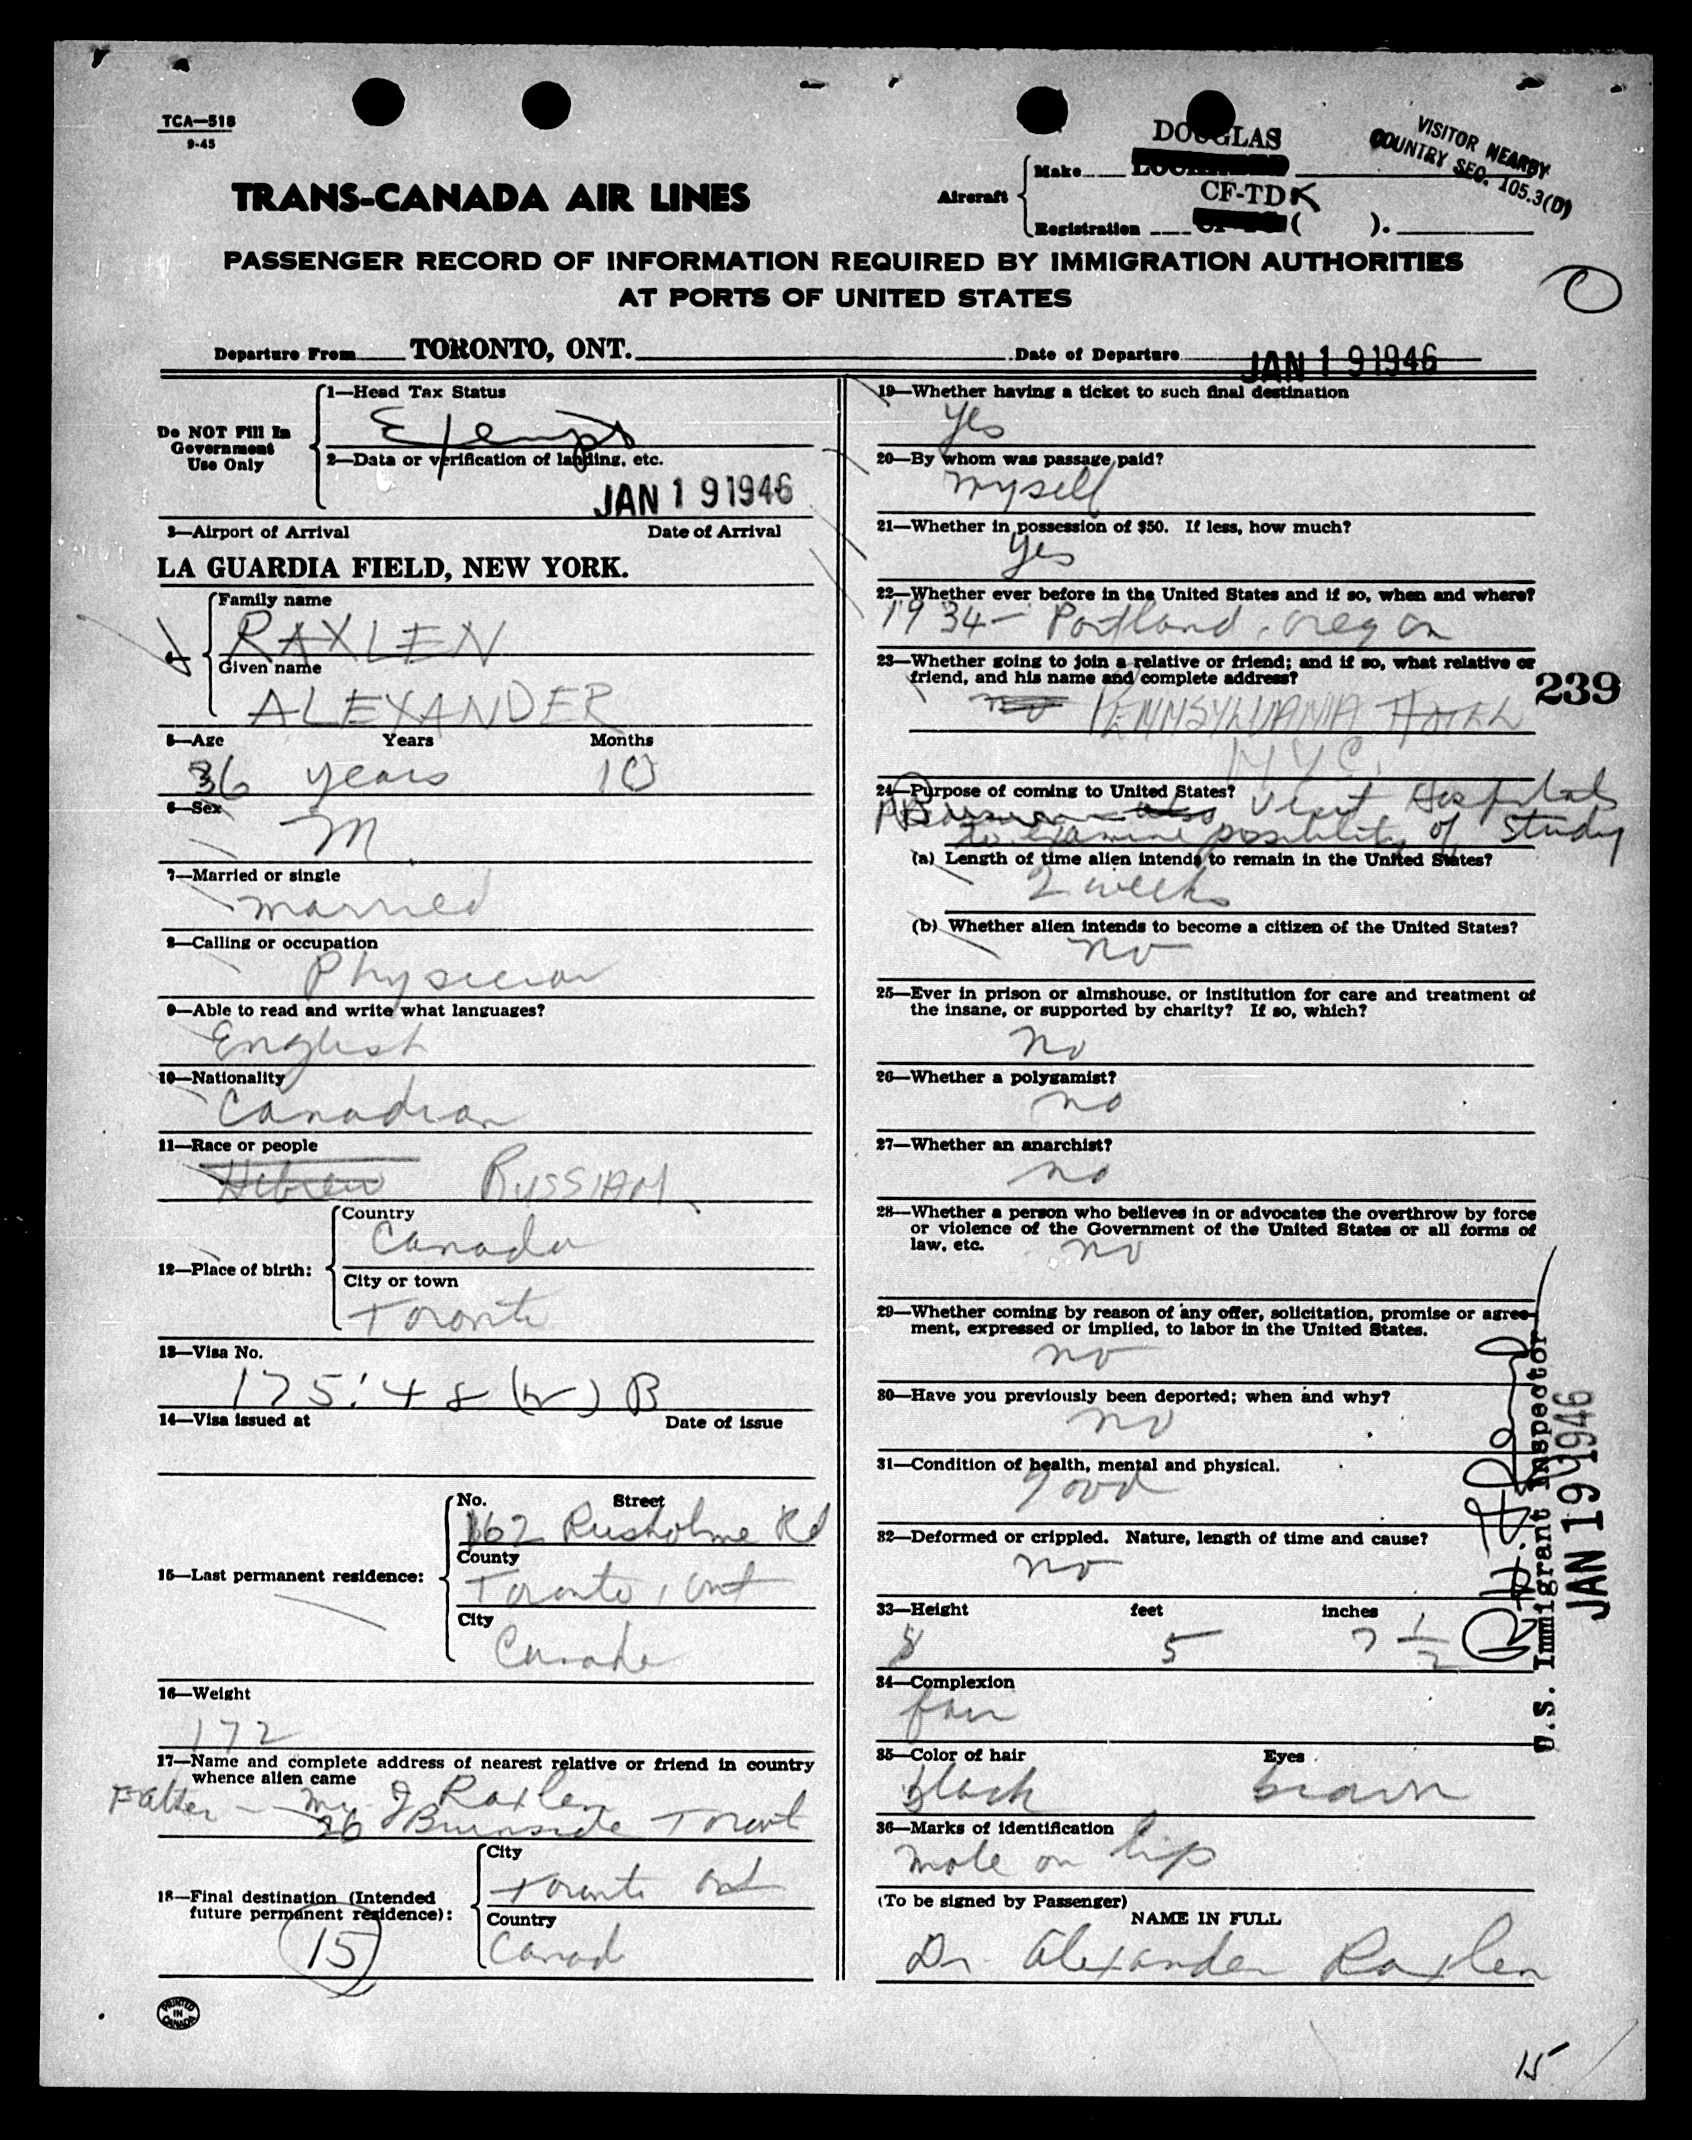 TCA—518
9-45
VISITOR NEARBY
COUNTRY SEC. 105.3(D)
DOUGLAS
Aircraft
Make
CF-TDK
Registration ( ).
TRANS-CANADA AIR LINES
PASSENGER RECORD OF INFORMATION REQUIRED BY IMMIGRATION AUTHORITIES
AT PORTS OF UNITED STATES
Departure From TORONTO, ONT. Date of Departure JAN 19 1946
Do NOT Fill In
Government
Use Only
1—Head Tax Status
Exempt
2—Data or verification of landing, etc.
JAN 19 1946
3—Airport of Arrival Date of Arrival
LA GUARDIA FIELD, NEW YORK.
4—
Family name
RAXLEN
Given name
ALEXANDER
5—Age Years Months
36 years 10
6—Sex
M.
7—Married or single
married
8—Calling or occupation
Physician
9—Able to read and write what languages?
English
10—Nationality
Canadian
11—Race or people
Hebrew RUSSIAN
12—Place of birth:
Country
Canada
City or town
Toronto
13—Visa No.
175.48 B
14—Visa issued at Date of issue
15—Last permanent residence:
No. Street
162 Rusholme Rd
County
Toronto, Ont
City
Canada
16—Weight
172
17—Name and complete address of nearest relative or friend in country
whence alien came
Father — Mr J Raxlen
26 Burnside Toront
18—Final destination (Intended
future permanent residence):
City
Toronto Ont
Country
Canad
15
PRINTED
IN
CANADA
19—Whether having a ticket to such final destination
Yes
20—By whom was passage paid?
myself
21—Whether in possession of $50. If less, how much?
Yes
22—Whether ever before in the United States and if so, when and where?
1934 — Portland, Oregon
23—Whether going to join a relative or friend; and if so, what relative or
friend, and his name and complete address?
no PENNSYLVANIA HOTEL
NYC.
239
24—Purpose of coming to United States?
also visit Hospitals
to examine possibility of study
(a) Length of time alien intends to remain in the United States?
2 weeks
(b) Whether alien intends to become a citizen of the United States?
no
25—Ever in prison or almshouse, or institution for care and treatment of
the insane, or supported by charity? If so, which?
no
26—Whether a polygamist?
no
27—Whether an anarchist?
no
28—Whether a person who believes in or advocates the overthrow by force
or violence of the Government of the United States or all forms of
law, etc.
no
29—Whether coming by reason of any offer, solicitation, promise or agree-
ment, expressed or implied, to labor in the United States.
no
30—Have you previously been deported; when and why?
no
31—Condition of health, mental and physical.
good
32—Deformed or crippled. Nature, length of time and cause?
no
33—Height feet inches
5 7 1/2
34—Complexion
fair
35—Color of hair Eyes
black brown
36—Marks of identification
mole on lip
(To be signed by Passenger)
NAME IN FULL
Dr. Alexander Raxlen
U.S. Immigrant Inspector
JAN 19 1946
15